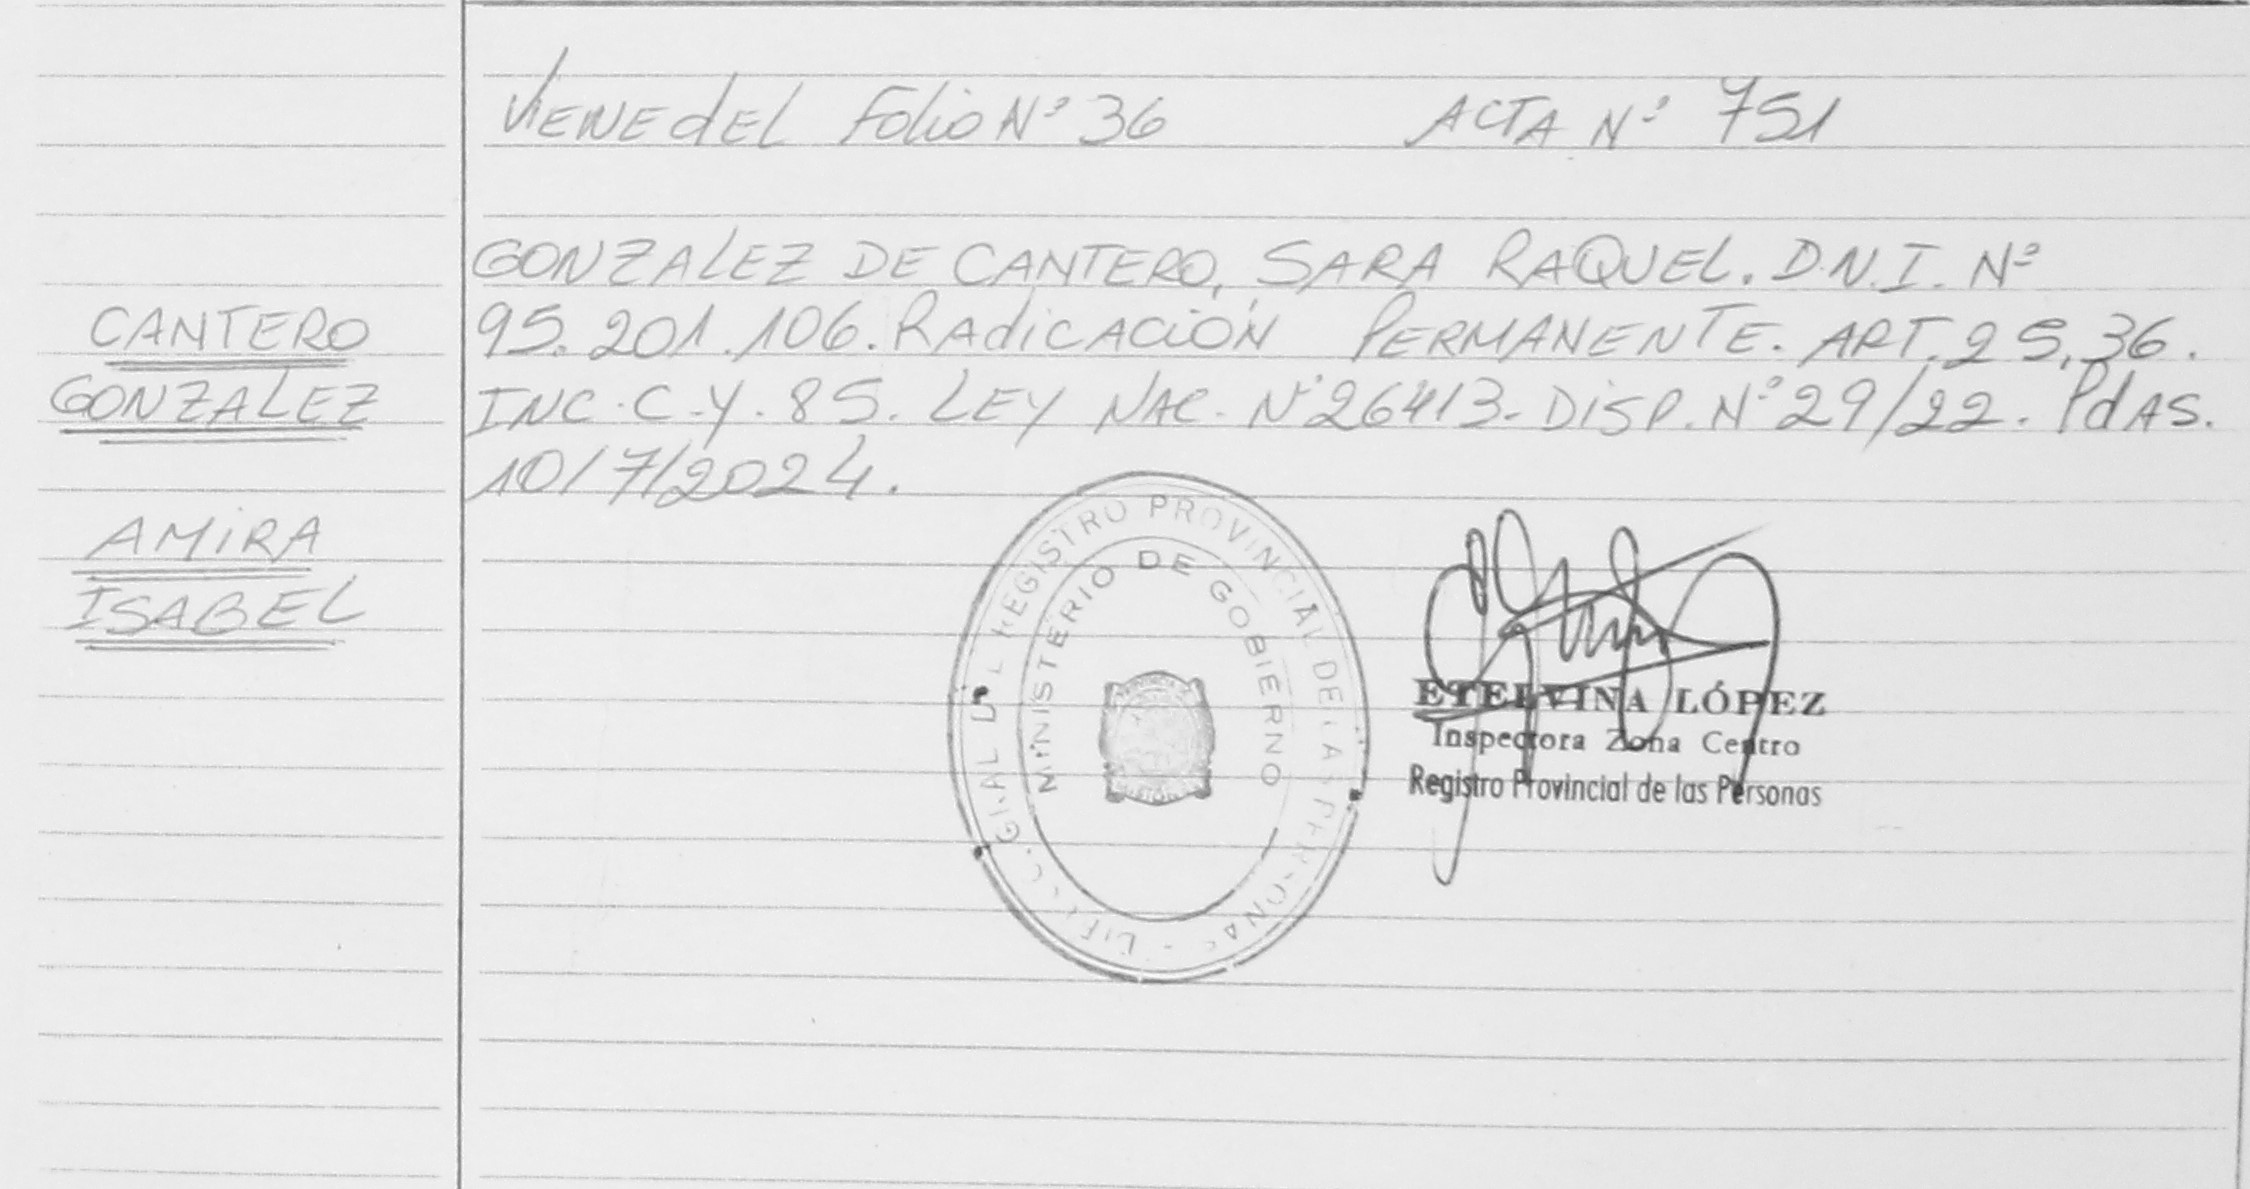 Viene del Folio Nº 36 ACTA Nº 751
GONZALEZ DE CANTERO, SARA RAQUEL. D.N.I. Nº
95.201.106. RAdiCACiÓN PERMANENTE. ART. 25, 36.
INC. C. Y. 85. LEY NAC. Nº 26413. DiSP. Nº 29/22. PdAS.
10/7/2024.
CANTERO
GONZALEZ
AMiRA
ISABEL
REGISTRO PROVINCIAL DE LAS PERSONAS
MINISTERIO DE GOBIERNO
ETELVINA LÓPEZ
Inspectora Zona Centro
Registro Provincial de las Personas